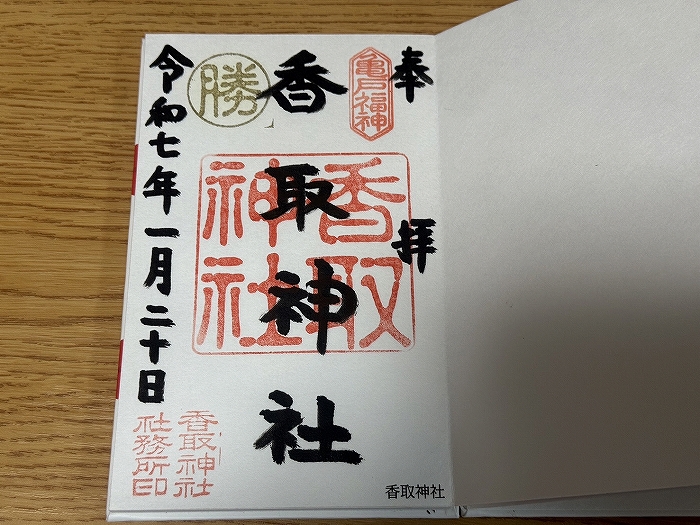 奉拝
亀戸福神
香取神社
香取神社
勝
令和七年一月二十日
香取神社
社務所印
香取神社